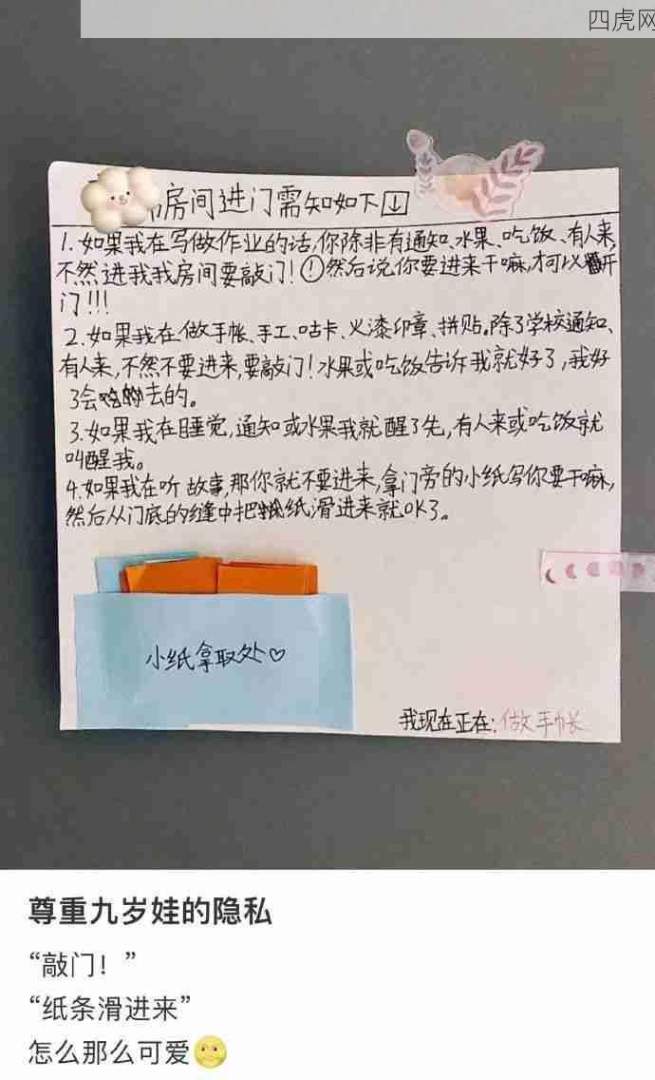 四虎网
房间进门需知如下↓
1.如果我在写做作业的话,你除非有通知、水果、吃饭、有人来,
不然进我我房间要敲门!!然后说你要进来干嘛,才可以开
门!!!
2.如果我在做手帐、手工、咕卡、火漆印章、拼贴。除了学校通知、
有人来,不然不要进来,要敲门!水果或吃饭告诉我就好了,我好
了会去的。
3.如果我在睡觉,通知或水果我就醒了先,有人来或吃饭就
叫醒我。
4.如果我在听故事,那你就不要进来,拿门旁的小纸写你要干嘛,
然后从门底的缝中把纸滑进来就OK了。
小纸拿取处♡
我现在正在:做手帐
尊重九岁娃的隐私
“敲门！”
“纸条滑进来”
怎么那么可爱